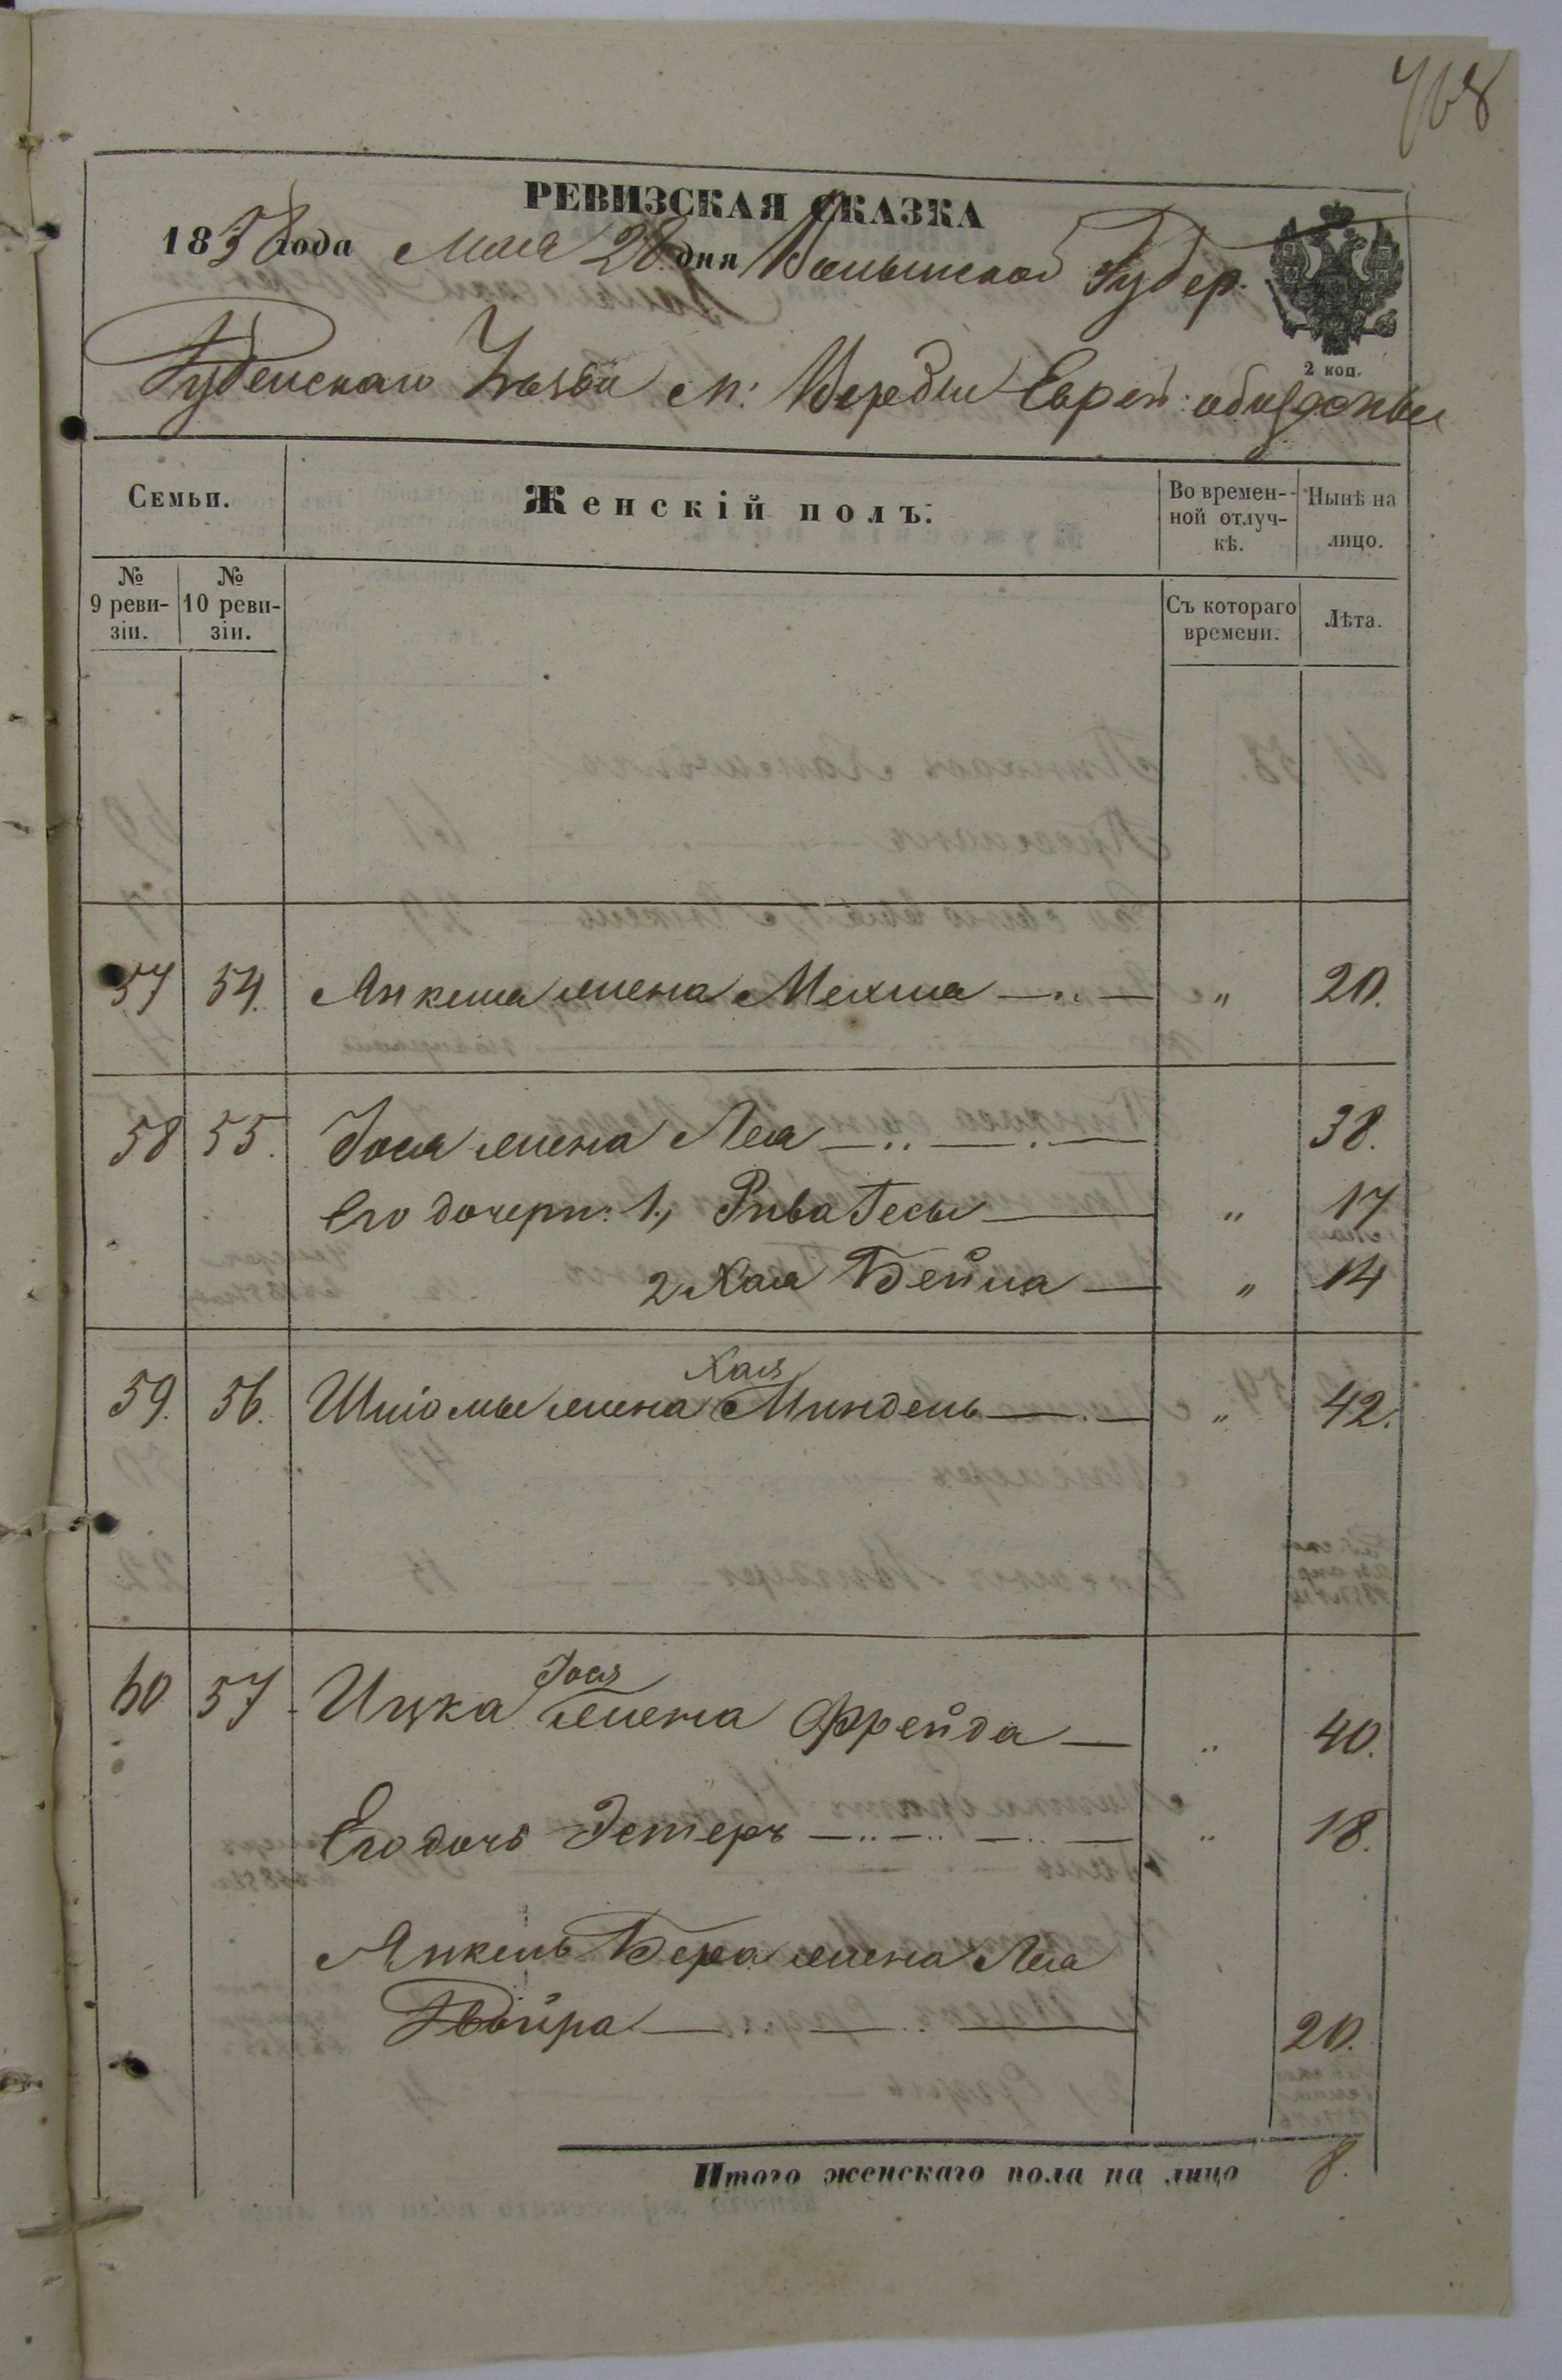 768
РЕВИЗСКАЯ СКАЗКА
1858 года Мая 20 дня Волынской Губер.
Дубенскаго Уѣзда м: Вербы Еврей:
2 коп.
Семьи.
Женскій полъ.
Во времен-
ной отлуч-
кѣ.
Нынѣ на
лицо.
№
9 реви-
зіи.
№
10 реви-
зіи.
Съ котораго
времени.
Лѣта.
57 54. Янкеля жена Мехля " 20.
58 55. Іося жена Лея 38.
Его дочери: 1., Рива Гесы " 17
2 Хая Бейла " 14
Хая
59. 56. Шліомы жена Миндель " 42.
Іося
60 57 Ицка жена Фрейда " 40.
Его дочь Эстеръ " 18.
Янкель Бера жена Лея
Двойра 20.
Итого женскаго пола на лицо 8.